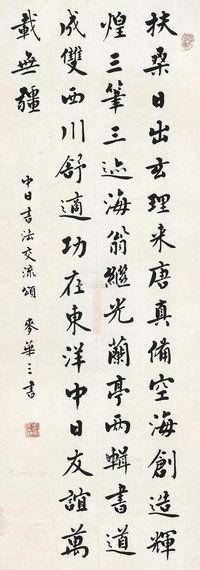 扶桑日出玄理来唐真備空海創造輝
煌三筆三迹海翁繼光蘭亭两輯書道
成雙西川舒適功在東洋中日友誼萬
載無疆
中日書法交流頌 麥華三書